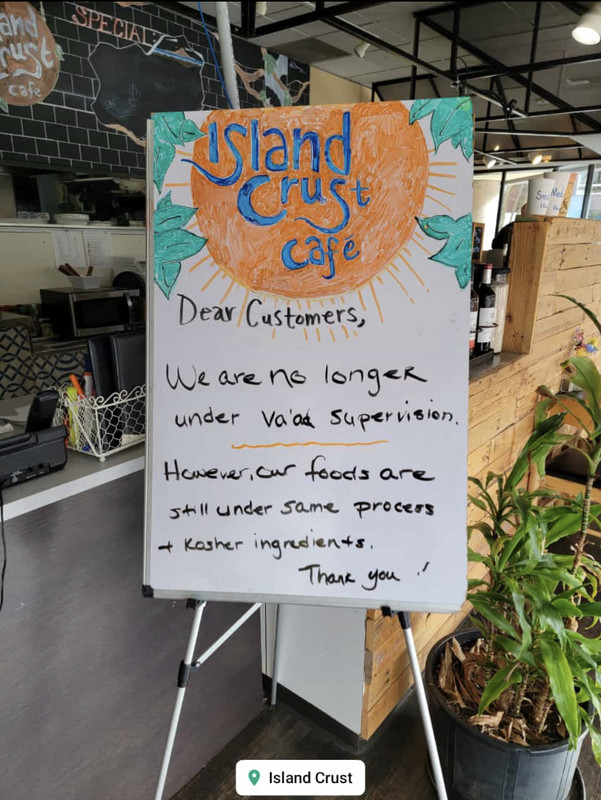 SPECIAL:
Island
Crust
cafe
Island
Crust
café
Dear Customers,
We are no longer
under Va'ad Supervision.
However, our foods are
still under same process
+ Kosher ingredients.
Thank you!
Island Crust